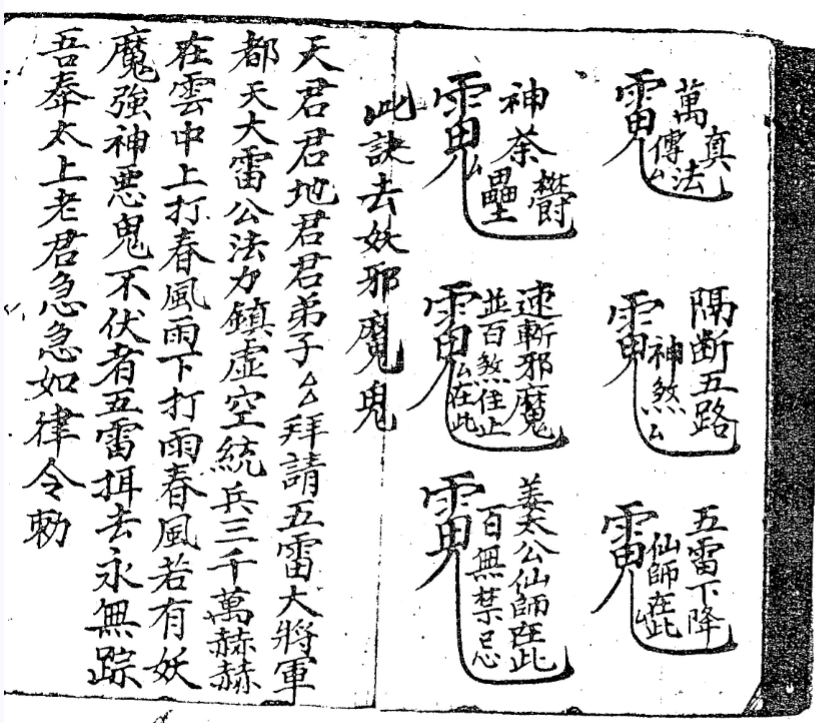 萬真
傳法
隔断五路
神煞厶
五雷下降
仙師在此
神荼鬱壘
速斬邪魔
並百煞住止
厶在此
姜太公仙師在此
百無禁忌
此訣去妖邪魔鬼
天君君地君君弟子厶厶拜請五雷大將軍
都天大雷公法力鎮虛空統兵三千萬赫赫
在雲中上打春風雨下打雨春風若有妖
魔強神悪鬼不伏者五雷挕去永無踪
吾奉太上老君急急如律令勅